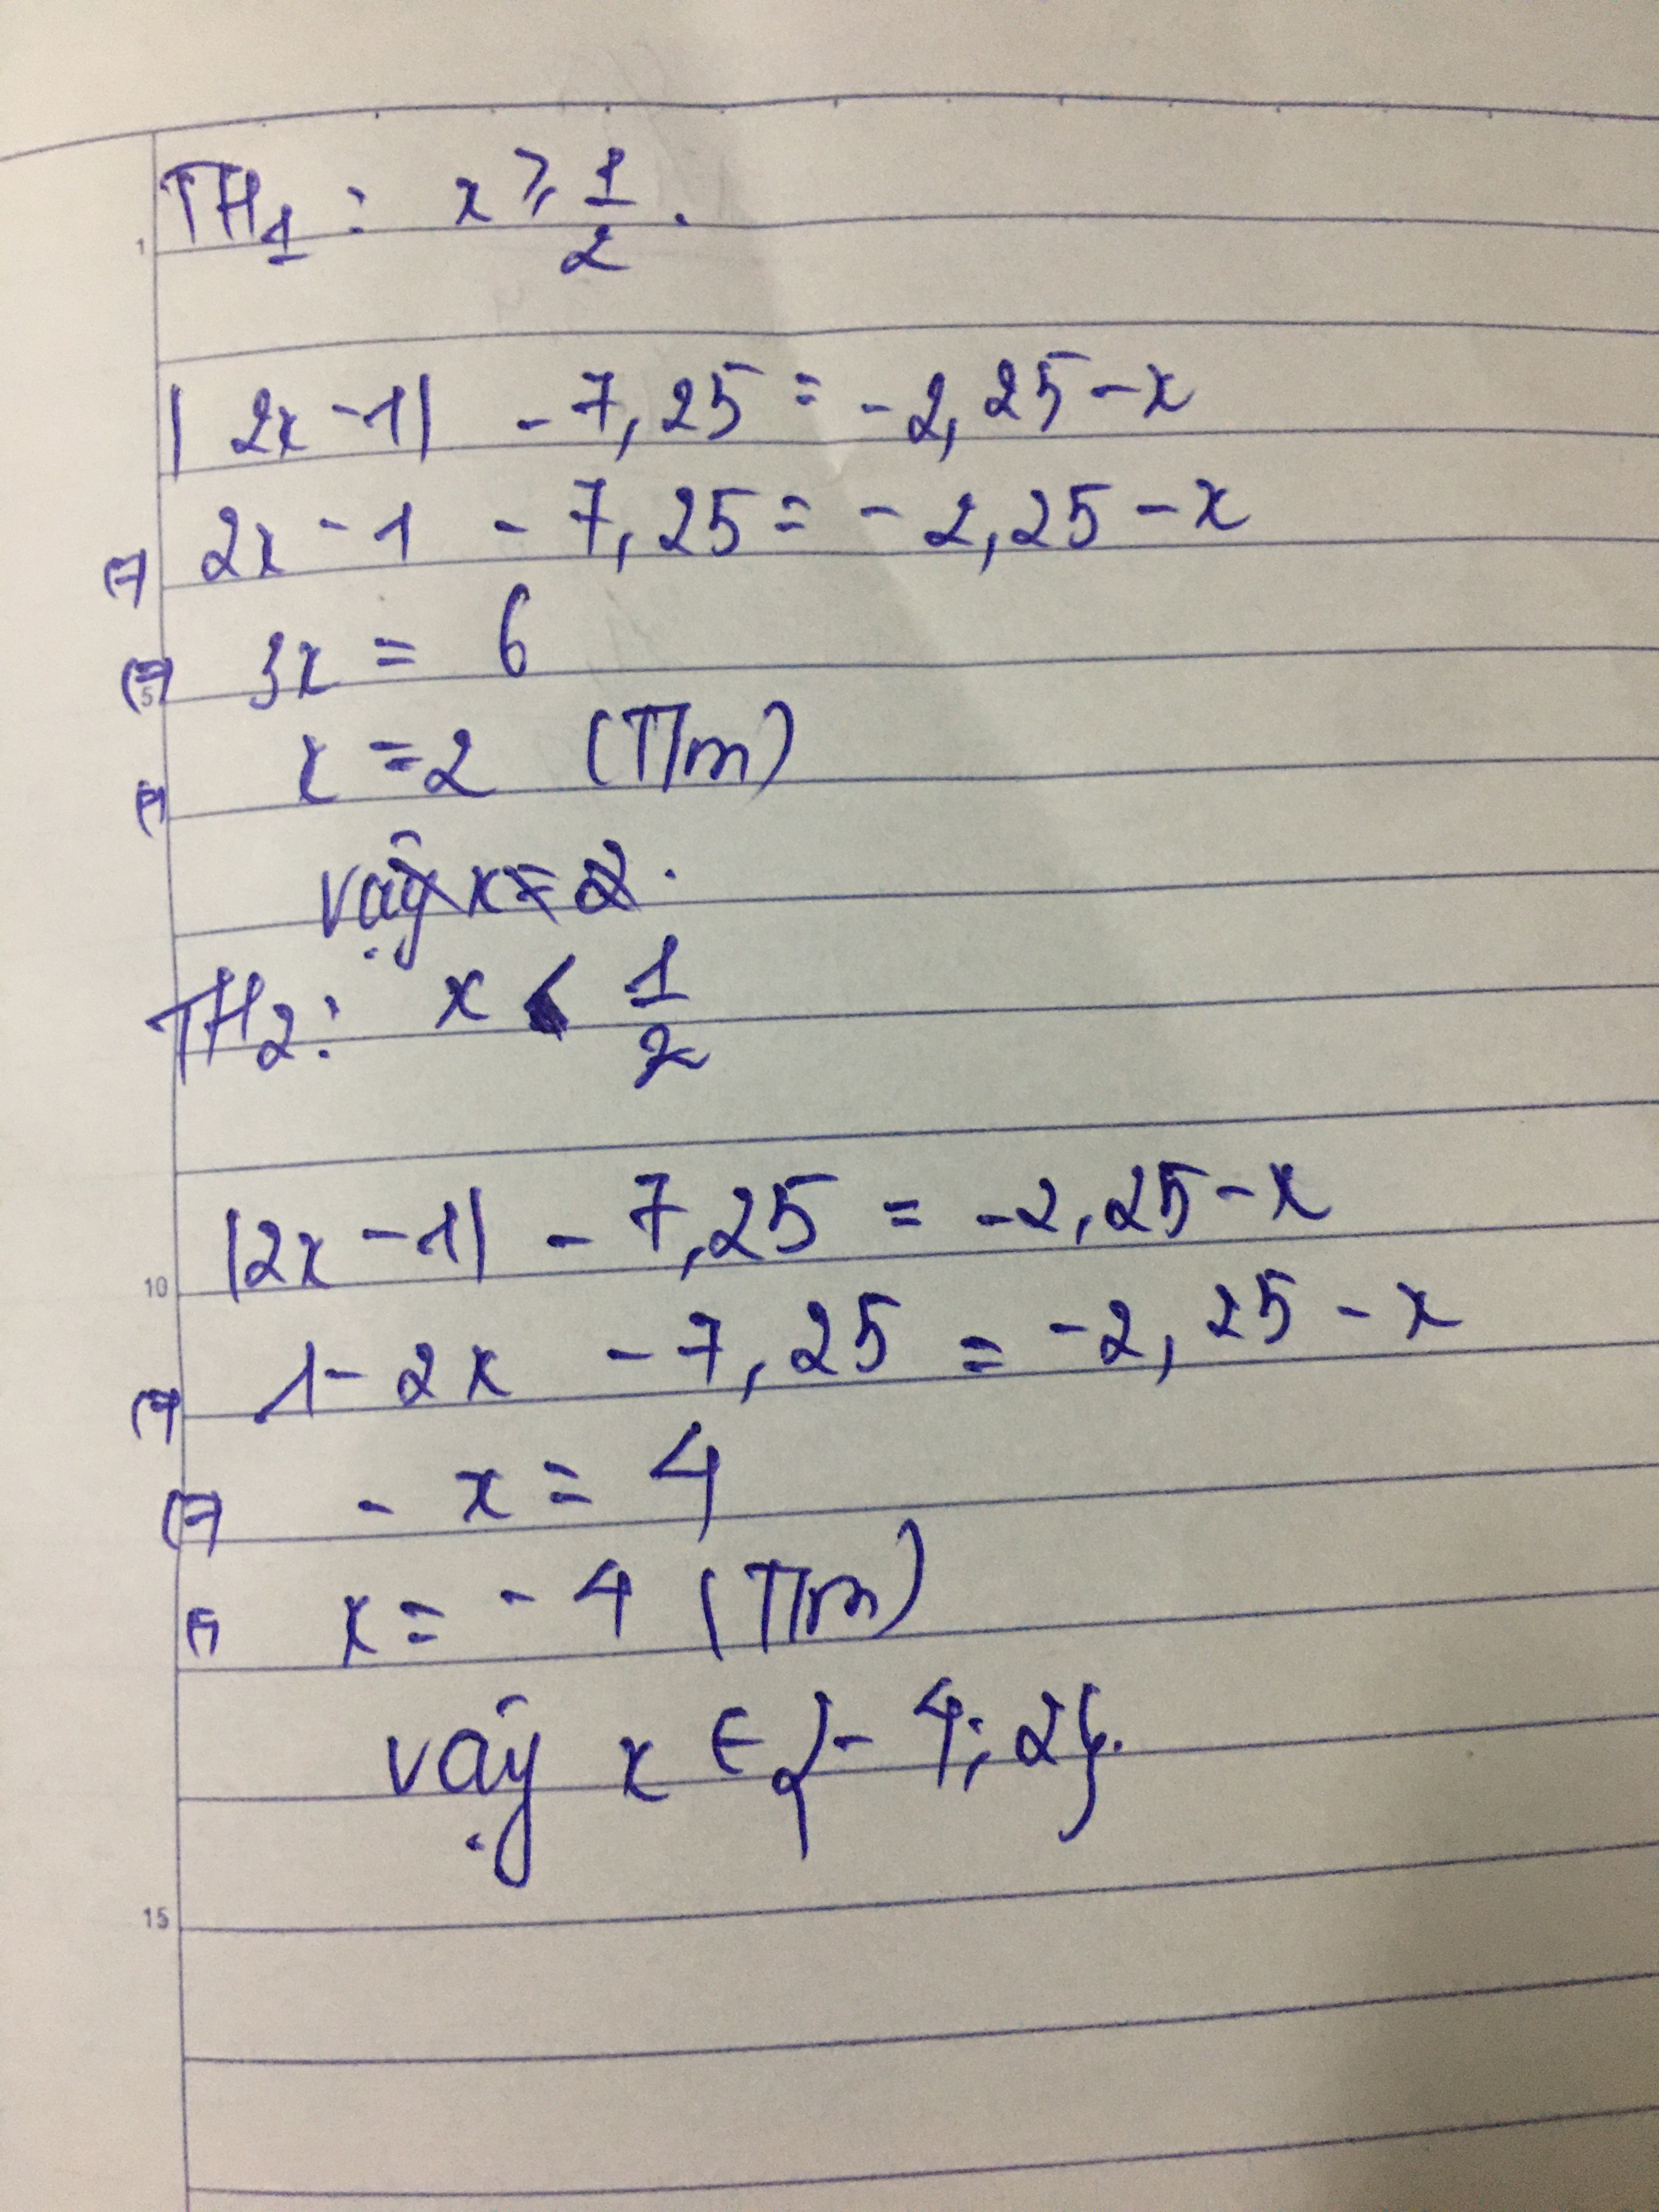 TH1: x ≥ 1/2.
|2x - 1| - 7,25 = -2,25 - x
(=) 2x - 1 - 7,25 = -2,25 - x
(=) 3x = 6
(=) x = 2 (T/m)
vậy x = 2.
TH2: x < 1/2
|2x - 1| - 7,25 = -2,25 - x
10
(=) 1 - 2x - 7,25 = -2,25 - x
(=) - x = 4
(=) x = - 4 (T/m)
vậy x ∈ {- 4; 2}.
15